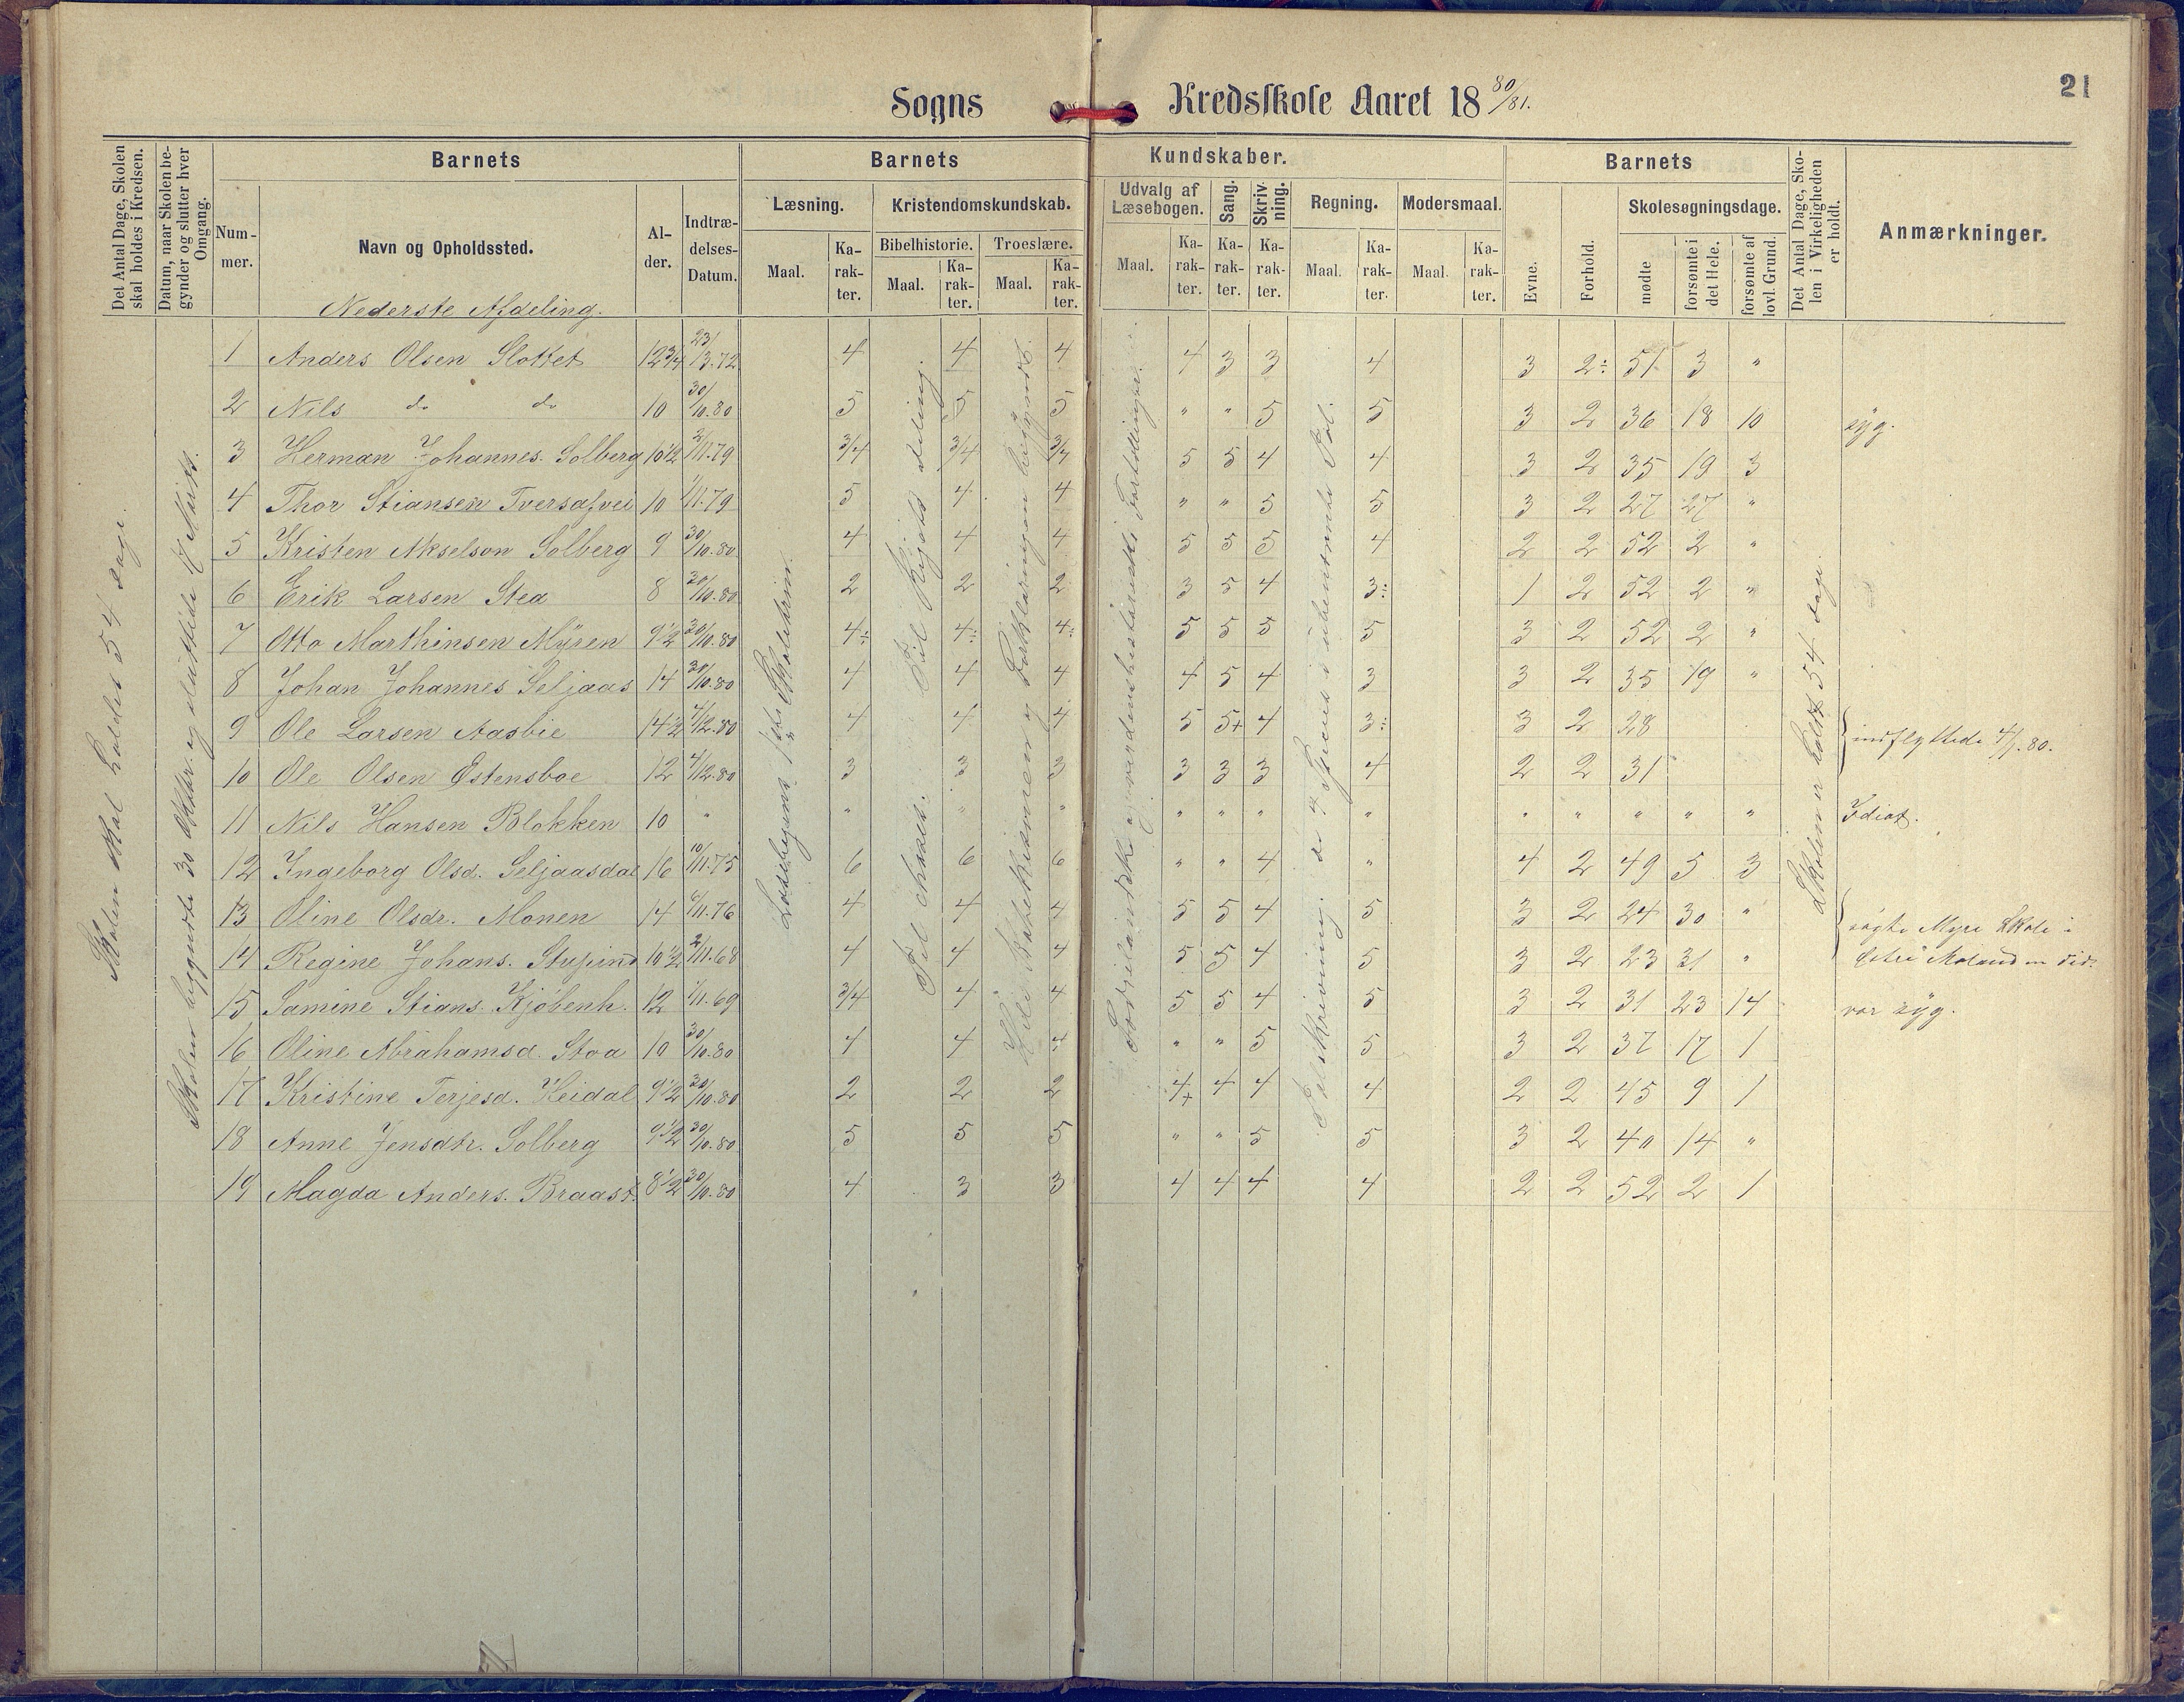 21
Sogns Kredsskole Aaret 18 80/81.
Det Antal Dage, Skolen skal holdes i Kredsen.
Datum, naar Skolen begynder og slutter hver Omgang.
Barnets
Nummer.
Navn og Opholdssted.
Alder.
Indtrædelses-Datum.
Barnets Kundskaber.
Læsning.
Maal. Karakter.
Kristendomskundskab.
Bibelhistorie. Troeslære.
Maal. Karakter. Maal. Karakter.
Udvalg af Læsebogen.
Maal. Karakter.
Sang. Karakter.
Skrivning. Karakter.
Regning.
Maal. Karakter.
Modersmaal.
Maal. Karakter.
Barnets
Evne. Forhold.
Skolesøgningsdage.
mødte forsømte i det Hele. forsømte af lovl. Grund.
Det Antal Dage, Skolen i Virkeligheden er holdt.
Anmærkninger.
Nederste Afdeling.
Skolen skal holdes 54 dage.
Skolen begyndte 30 Oktbr. og sluttede 17 Marts.
Til Kijøds deling.
Skolen er holdt 54 dage.
1 Anders Olsen Slottet 12 3/4 23/13.72 4 4 4 4 3 3 4 3 2÷ 51 3 "
2 Nils do do 10 30/10.80 5 5 5 " " 5 5 3 2 36 18 10 syg.
3 Herman Johannes. Solberg 10 1/2 3/11.79 3/4 3/4 3/4 5 5 4 4 3 2 35 19 3
4 Thor Stiansen Tversafvei 10 1/11.79 5 4 4 " " 5 5 3 2 27 27 "
5 Kristen Akselson Solberg 9 30/10.80 4 4 4 5 5 5 4 2 2 52 2 "
6 Erik Larsen Stea 8 30/10.80 2 2 2 3 5 4 3÷ 1 2 52 2 "
7 Otto Marthinsen Myren 9 1/2 30/10.80 4÷ 4÷ 4÷ 5 5 5 5 3 2 52 2 "
8 Johan Johannes Seljaas 14 30/10.80 4 4 4 4 5 4 3 3 2 35 19 "
9 Ole Larsen Aasbie 14 1/2 4/12.80 4 4 4 5 5+ 4 3÷ 3 2 28
10 Ole Olsen Østensboe 12 4/12.80 3 3 3 3 3 3 4 2 2 31
indflyttede 4/1.80.
11 Nils Hansen Blokken 10 " " " " " " " " " " " " " Idiot.
12 Ingeborg Olsd. Seljaasdal 16 10/11.75 6 6 6 " " 4 " 4 2 49 5 3
13 Oline Olsdr. Monen 14 6/11.76 4 4 4 5 5 4 5 3 2 24 30 " søgte Myre Skole i
14 Regine Johans. Stupind 10 1/2 2/11.68 4 4 4 5 5 4 5 3 2 23 31 " Østre Moland en Tid.
15 Samine Stians. Kjøbenh. 12 1/11.69 3/4 4 4 5 5 4 5 3 2 31 23 14 var syg.
16 Oline Abrahamsd. Stoa 10 30/10.80 4 4 4 " " 5 5 3 2 37 17 1
17 Kristine Terjesd. Heidal 9 1/2 30/10.80 2 2 2 4+ 4 4 4 2 2 45 9 1
18 Anne Jensdtr. Solberg 9 1/2 30/10.80 5 5 5 " " 5 5 3 2 40 14 "
19 Magda Anders. Braast. 8 1/2 30/10.80 4 3 3 4 4 4 4 2 2 52 2 1